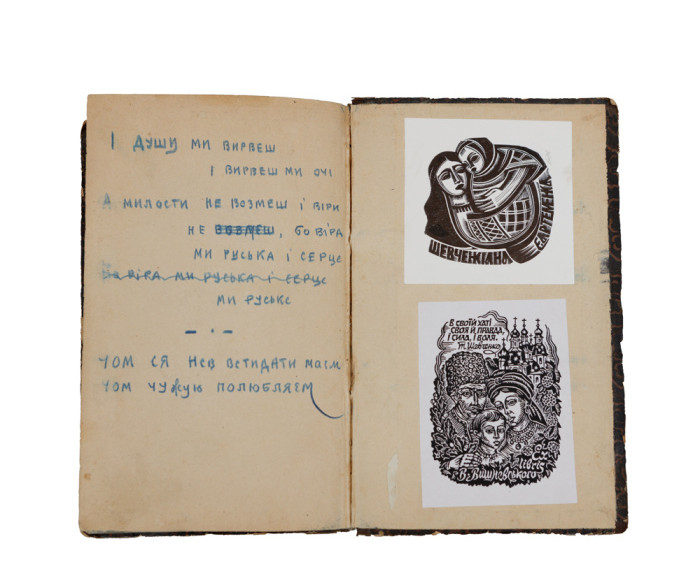 І ДУШУ МИ ВИРВЕШ
І ВИРВЕШ МИ ОЧІ
А МИЛОСТИ НЕ ВОЗМЕШ І ВІРИ
НЕ ВОЗМЕШ, БО ВІРА
МИ РУСЬКА І СЕРЦЕ
БО ВІРА МИ РУСЬКА І СЕРЦЕ
МИ РУСЬКЕ
ЧОМ СЯ НЕВ ВСТИДАТИ МАЄМ
ЧОМ ЧУЖУЮ ПОЛЮБЛЯЄМ
ШЕВЧЕНКІАНА
В СВОЇЙ ХАТІ
СВОЯ Й ПРАВДА,
І СИЛА, І ВОЛЯ.
Т. Шевченко
Ex
libris
В. Вишневського